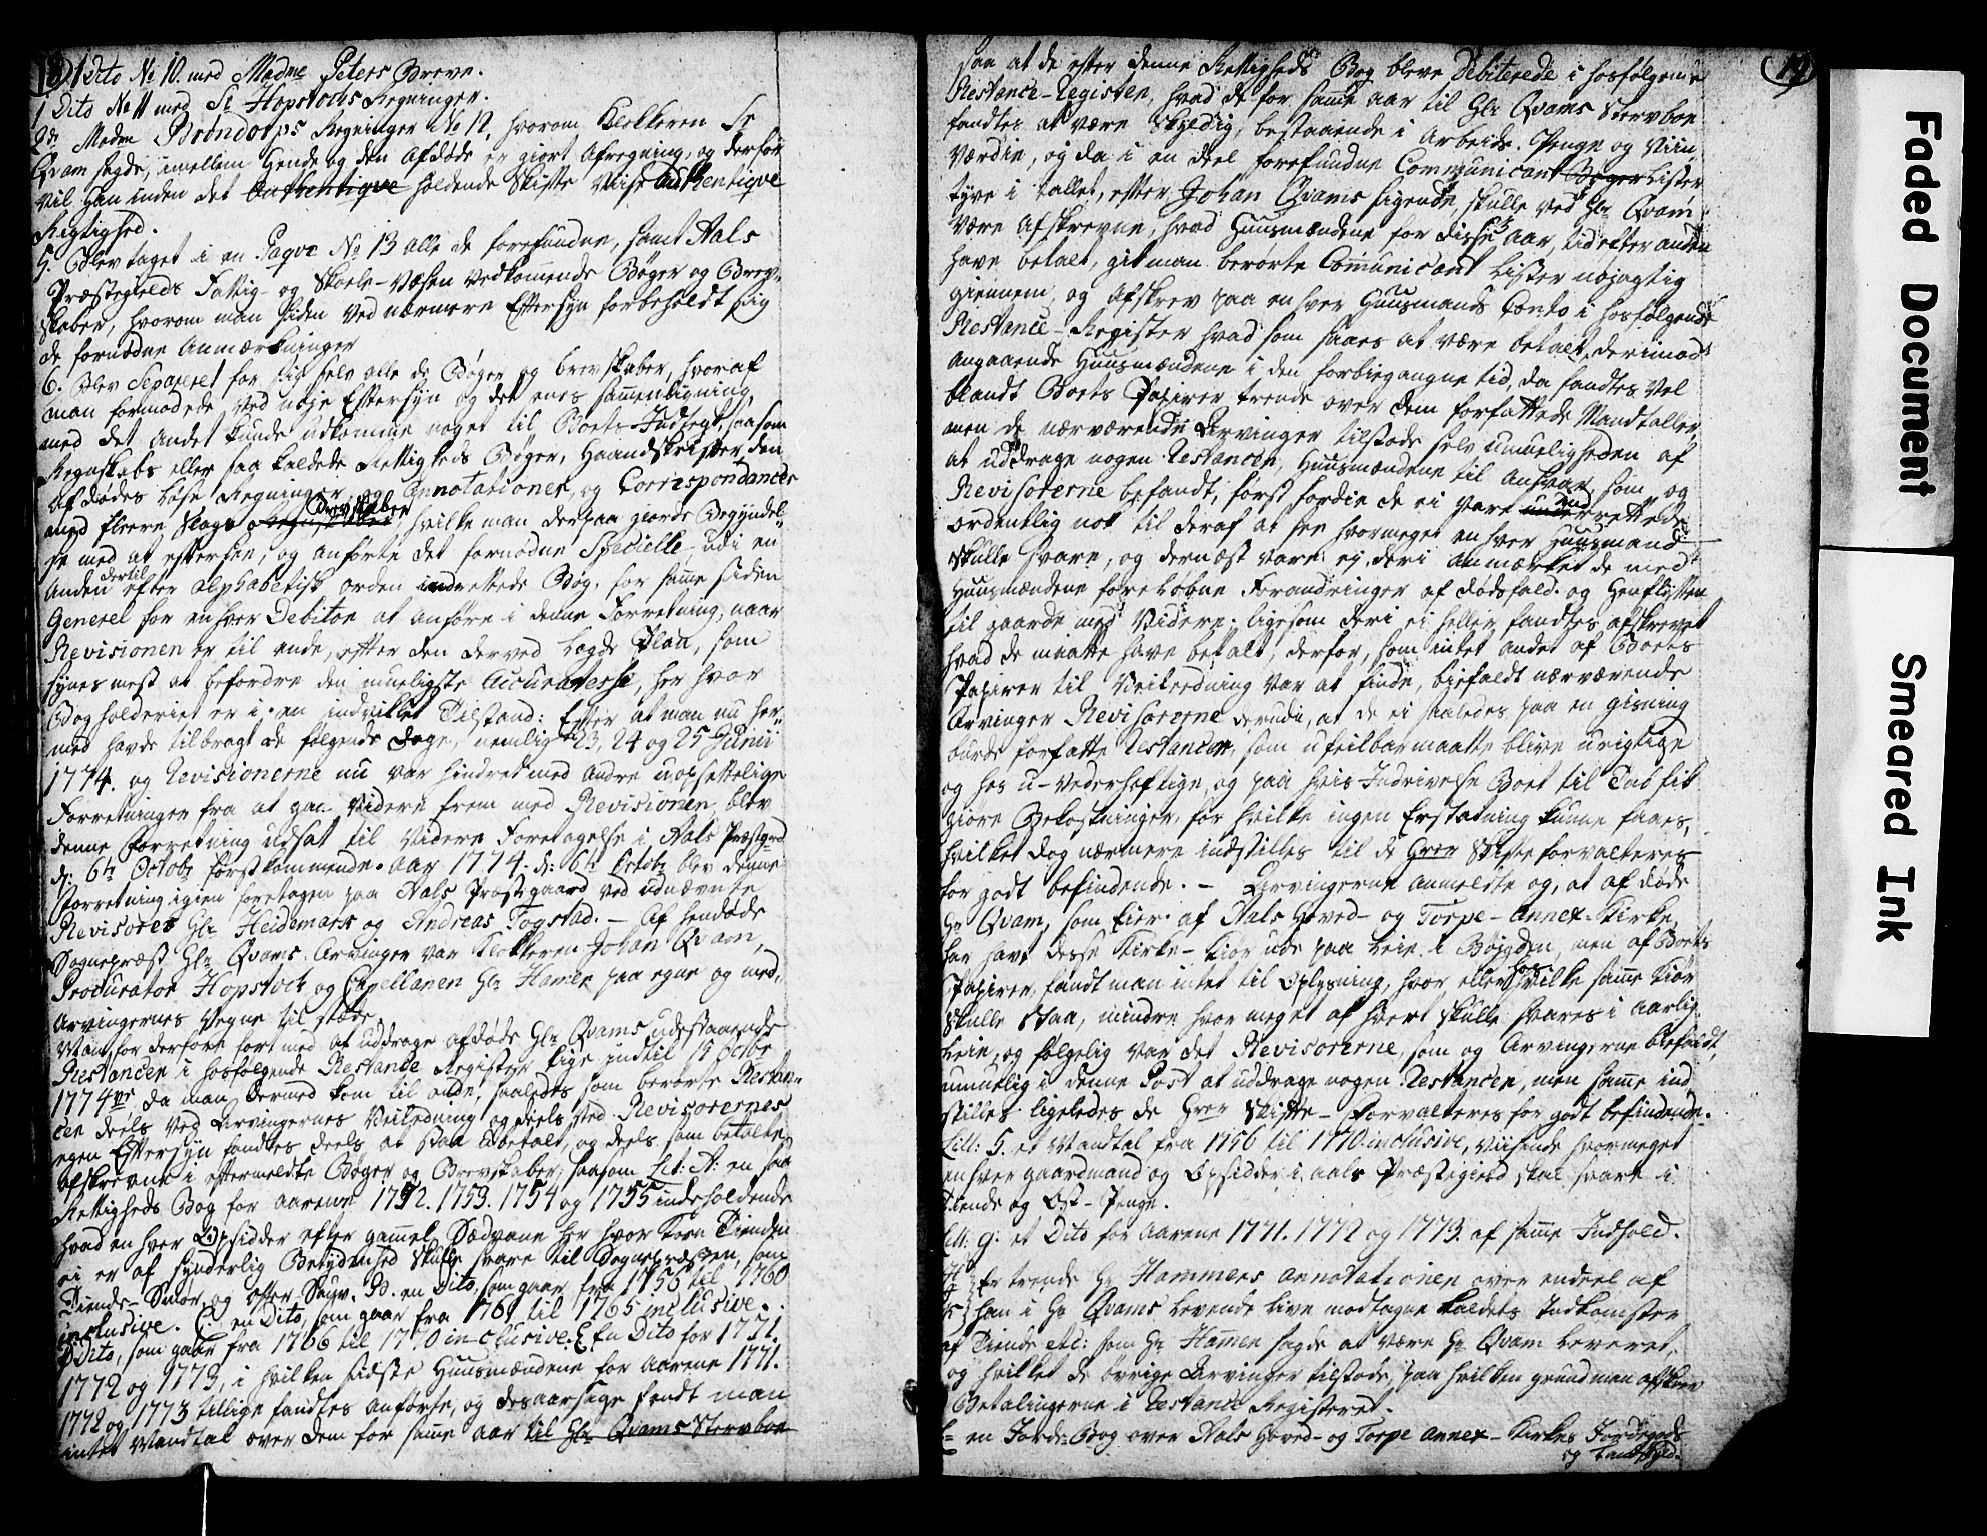 18
1 Dito No 10. med Madme Peters Breve.
1 Dito No 11 med Sr Hopstochs Regninger.
2de Madm Brøndorps Regninger No 12, hvorom Klokkeren Sr
Qvam sagde, imellem hende og den afdøde er giort Afregning, og derfor
vil han inden det Authentiqve holdende Skifte viise Authentiqve
Rigtighed.
5. Blev taget i en Paqve No 13 alle de forefundne, samt Aals
Præstegields Fattig- og Skole-Væsen vedkomende Bøger og Brev-
skaber, hvorom man siden ved nærmere Eftersyn forbeholdt sig
de fornødne Anmærkninger
6. Blev Separeret for sig selv alle de Bøger og brevskaber, hvoraf
man formodede, ved nøje Eftersyn og det enes sammenligning,
med det andet kunde udkomme noget til Boets Indtegt, saasom
Regnskabs eller saa kaldede Rettigheds Bøger, Haandskrifter, den
afdødes løse Regninger, og Annotationer, og Correspondancer
med fleere Slags Brevskaber, hvilke man derpaa giorde Begyndel-
se med at eftersee, og anførte det fornødne Specielle udi en
anden dertil efter alphabetisk orden indrettede Bog, for samme siden
Generel for en hver Debitor at anføre i denne Forretning, naar
Revisionen er til ende, efter den derved lagde Plan, som
synes mest at befordre den mueligste Accuratesse, her hvor
Bogholderiet er i en indviklet Tilstand: Efter at man nu her-
med havde tilbragt de følgende dage, nemlig 23, 24 og 25 Junii
1774. og Revisionerne nu var hindret med andre uopsettelige
Forretninger fra at gaa videre frem med Revisionen, blev
denne Forretning udsat til videre Foretagelse i Aals Præstgrd
d: 6te Octobr førstkommende. Aar 1774. d: 6te Octobr blev denne
Forretning igien foretagen paa Aals Præstgaard ved udnævnte
Revisores Hr Heidemark og Andreas Togstad. – Af hendøde
Sognepræst Hr Qvams Arvinger var Klokkeren Johan Qvam,
Procurator Hopstock og Capellanen Hr Hamer paa egne og med-
Arvingernes Vegne til stæde.
Man for derfore fort med at uddrage afdøde Hr Qvams udestaaende
Restancer i hosfølgende Restance Register lige indtil 15 Octobr
1774 da man dermed kom til ende, saaledes som berørte Restan-
cer deels ved Arvingernes Veiledning og deels ved Revisorernes
egen Eftersyn fandtes deels at staa ubetalt, og deels som betalte
afskrevne i eftermeldte Bøger og Brevskaber, saasom Lit: A: en saa
Rettigheds Bog for aarene 1752. 1753. 1754 og 1755 indeholdende
hvad en hver Opsidder efter gammel Sædvane her hvor Korn Tienden
ei er af synderlig Betydenhed skulle svare til Sognepræsten, som
Tiende-Smør, og offer Saug. B. en Dito, som gaar fra 1756 til 1760
inclusive. C. en Dito, som gaar fra 1761 til 1765 inclusive.
D Dito, som gaar fra 1766 til 1770 inclusive. E En Dito for 1771.
1772 og 1773, i hvilken sidste Huusmændene for Aarene 1771.
1772 og 1773 tillige fandtes anførte, og desaarsage fandt man
intet Mandtal over dem for samme aar til Hr Qvams Stervboe
19
saa at de efter denne Rettigheds Bog bleve Debiterede i hosfølgende
Restance-Register, hvad de for samme aar til Hr Qvams Stervboe
fandtes at være skyldig, bestaaende i Arbeids-Penge og Viin
Værdie, og da i en deel forefundne Communicant Bøger Lister,
tyve i tallet, efter Johan Qvams sigende, skulle ved Hr Qvam
være afskrevne, hvad Huusmændene for disse aar, tid efter anden
have betalt, gik man berørte Communicant Lister nøjagtig
giennem, og Afskrev paa en hver Huusmands Conto i hosfølgende
Restance-Register hvad som saaes at være betalt, derimod
angaaende Huusmændene i den forbiegangne tid, da fandtes vel
blandt Boets Papirer trende over dem forfattede Mandtaller,
men de nærværende Arvinger tilstode selv umueligheden af
at uddrage nogen Restancer, Huusmændene til Ansvar, som og
Revisorerne befandt, først fordie de ei vare indrettede
ordentlig nok til deraf at see hvormeget en hver Huusmand
skulle svare, og dernæst vare ej deri anmærket de med
Huusmændene foreløbne Forandringer af dødsfald. og Henflytten
til gaarde med videre. ligesom deri ei heller fandtes afskrevet
hvad de maatte have betalt; derfor, som intet andet af Boets
Papirer til Veiledning var at finde, biefaldt nærværende
Arvinger Revisorerne derudi, at de ei saaledes paa en gisning
burde forfatte Restancer, som ufeilbar maatte blive urigtige
og hos u-vederheftige, og paa hvis Indrivelse Boet til Tab fik
giøre Bekostninger, for hvilke ingen Erstatning kunne faaes,
hvilket dog nærmere indstilles til de Hrer Skifteforvalteres
for godt befindende. – Arvingerne anmeldte og, at afdøde
Hr Qvam, som Eier af Aals Hoved- og Torpe-Annex-Kirke,
har havt desse Kirke-Kiør ude paa Leie i Bøjgden, men af Boets
Papirer fandt man intet til Oplysning, hvor eller hos hvilke samme Kiør
skulle staa, mindre hvor meget af hvert skulle svares i aarlig
Leie, og følgelig var det Revisorerne, som og Arvingerne befandt,
umuelig i denne Post at uddrage nogen Restancer, men samme ind-
stilles ligeledes de Hrer Skifte-Forvalteres for godt befindende.
Litt: F. et Mandtal fra 1756 til 1770 inclusive, viisende hvormeget
en hver gaardmand og Opsidder i Aals Præstegield skal svare i
Tiende og Ost-Penge.
Litt: G. et Dito for aarene 1771. 1772 og 1773. af samme Indhold.
H. Er trende Hr Hammers Annotationer over endeel af
han i Hr Qvams levende live modtagne kaldets Indkomster
af Tiende etc: som Hr Hamer sagde at være Hr Qvam leveret,
og hvilket de øvrige Arvinger tilstode, paa hvilken grund man afskrev
Betalingerne i Restance Registeret.
L en Jorde-Bog over Aals Hoved- og Torpe Annex-Kirkes Jordegods
og Landskyld.
Faded Document
Smeared Ink